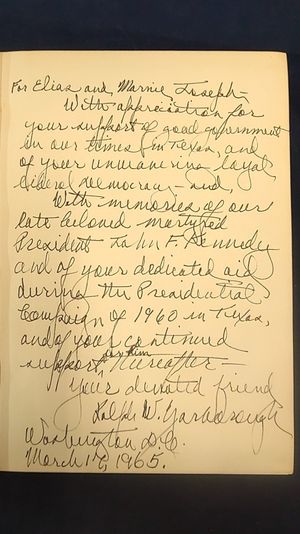 For Elias and Mannie Joseph –
With appreciation for
your support of good government
in our times in Texas, and
of your unwavering loyal
liberal democracy – and,
With memories of our
late beloved martyred
President John F. Kennedy
and of your dedicated aid
during the Presidential
Campaign of 1960 in Texas,
and of your continued
support for him thereafter –
Your devoted friend
Ralph W. Yarborough
Washington D.C.
March 17, 1965.